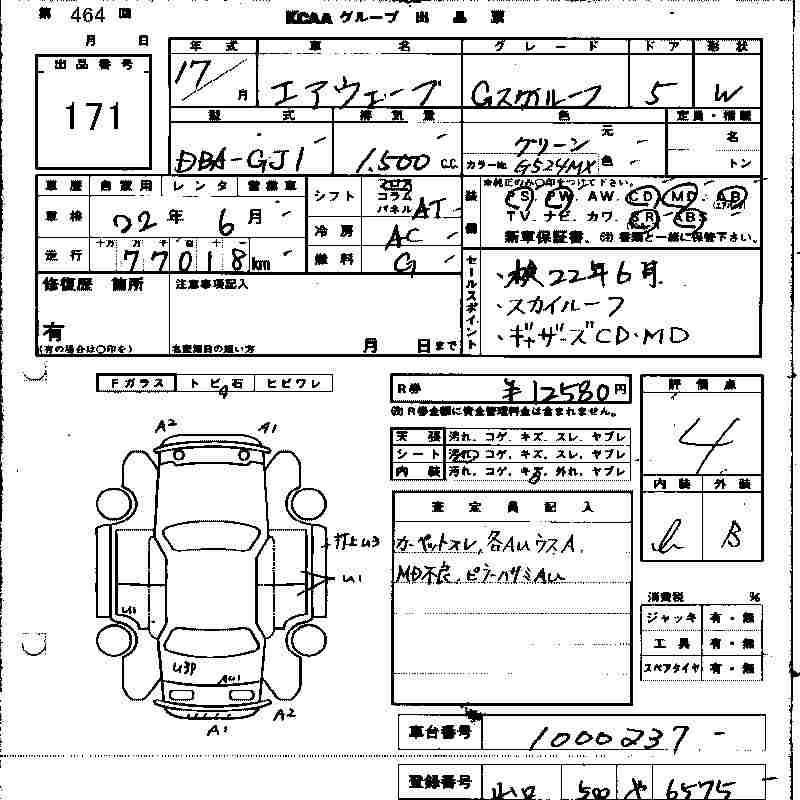 第 464 回
KCAA グループ 出品票
月 日
出品番号
171
年式 車名 グレード ドア 形状
17 月 エアウェーブ Gスカイルーフ 5 W
型式 排気量 色 定員・積載
DBA-GJ1 1,500 C.C. グリーン 元色 名
カラーNo. G524MX トン
車歴 自家用 レンタ 営業車
車検 22年 6月
走行 十万 万 千 百 十
77018 km
シフト フロア コラム パネル AT
冷房 AC
燃料 G
装備 ※純正のみ○印をつけて下さい。
PS. PW. AW. CD. MD. AB (エアバッグ)
TV. ナビ. カワ. SR ABS
新車保証書. (注) 書類と一緒に保管下さい。
修復歴 箇所
有
(有の場合は○印を)
注意事項記入
名変期日の扱い方 月 日まで
セールスポイント
・検22年6月
・スカイルーフ
・ギャザーズCD・MD
Fガラス トビ石 ヒビワレ
R券 ¥12580円
(注)R券金額に資金管理料金は含まれません。
天張 汚れ. コゲ. キズ. スレ. ヤブレ
シート 汚れ. コゲ. キズ. スレ. ヤブレ
内装 汚れ. コゲ. キズ. 外れ. ヤブレ
評価点
4
内装 外装
B
査定員記入
カーペットスレ, 各AUウスA,
MD不良, ピラーハサミAU
A2 A1
打上U3
U1
U3P
AU1
A1 A2
消費税 %
ジャッキ 有・無
工具 有・無
スペアタイヤ 有・無
車台番号 1000237
登録番号 山口 500 や 6575